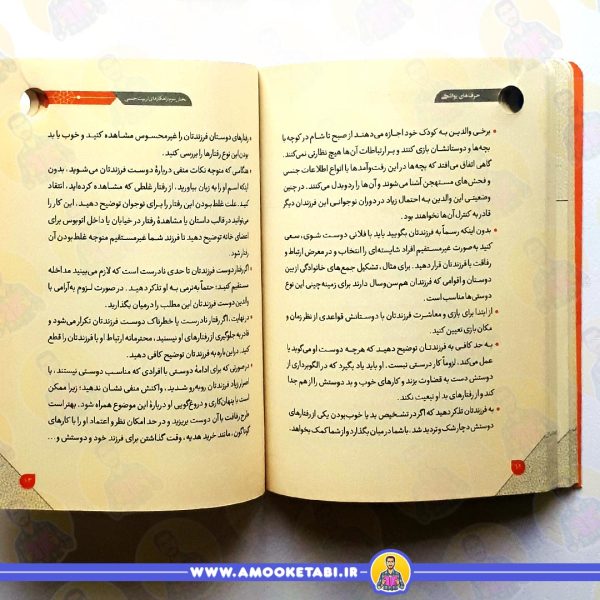 حرف‌های یواشکی
• برخی والدین به کودک خود اجازه می‌دهند از صبح تا شام در کوچه با
بچه‌ها و دوستانشان بازی کنند و بر ارتباطات آن‌ها هیچ نظارتی نمی‌کنند.
گاهی اتفاق می‌افتد که بچه‌ها در این رفت‌وآمدها با انواع اطلاعات جنسی
و فحش‌های مستهجن آشنا می‌شوند و آن‌ها را ردوبدل می‌کنند. در چنین
وضعیتی این والدین به احتمال زیاد در دوران نوجوانی این فرزندان دیگر
قادر به کنترل آن‌ها نخواهند بود.
• بدون اینکه رسماً به فرزندتان بگویید باید با فلانی دوست شوی، سعی
کنید به‌صورت غیرمستقیم افراد شایسته‌ای را انتخاب و در معرض ارتباط و
رفاقت با فرزندتان قرار دهید. برای مثال، تشکیل جمع‌های خانوادگی از بین
دوستان و اقوامی که فرزندان هم‌سن‌وسال دارند برای زمینه‌چینی این نوع
دوستی‌ها مناسب است.
• از ابتدا برای بازی و معاشرت فرزندتان با دوستانش قواعدی از نظر زمان و
مکان بازی تعیین کنید.
• به حد کافی به فرزندتان توضیح دهید که هرچه دوست او می‌گوید یا
عمل می‌کند، لزوماً کار درستی نیست. او باید یاد بگیرد که در الگوبرداری از
دوستش دست به قضاوت بزند و کارهای خوب و بد دوستش را از هم جدا
کند و از رفتارهای بد او تبعیت نکند.
• به فرزندتان تذکر دهید که اگر در تشخیص بد یا خوب بودن یکی از رفتارهای
دوستش دچار شک و تردید شد، با شما در میان بگذارد و از شما کمک بخواهد.
بخش سوم: راهکارهای تربیت جنسی
• رفتارهای دوستان فرزندتان را غیرمحسوس مشاهده کنید و خوب یا بد
بودن این نوع رفتارها را بررسی کنید.
• هنگامی که متوجه نکات منفی دربارهٔ دوست فرزندتان می‌شوید، بدون
اینکه اسم او را به زبان بیاورید، از رفتار غلطی که مشاهده کرده‌اید، انتقاد
کنید. علت غلط بودن این رفتار را برای نوجوان توضیح دهید. این کار را
می‌توانید در قالب داستان یا مشاهدهٔ رفتار در خیابان یا داخل اتوبوس برای
اعضای خانه توضیح دهید تا فرزند شما غیرمستقیم متوجه غلط‌بودن آن
رفتار شود.
• اگر رفتار دوست فرزندتان تا حدی نادرست است که لازم می‌بینید مداخله
مستقیم کنید؛ حتماً به‌نرمی به او تذکر دهید. در صورت لزوم به‌آرامی با
والدین دوست فرزندتان این مطلب را درمیان بگذارید.
• در نهایت، اگر رفتار نادرست یا خطرناک دوست فرزندتان تکرار می‌شود و
قادر به جلوگیری از رفتارهای او نیستید، محترمانه ارتباط او با فرزندتان را قطع
کنید. در این‌باره به فرزندتان توضیح کافی دهید.
• درصورتی که برای ادامهٔ دوستی با افرادی که مناسب دوستی نیستند، با
اصرار زیاد فرزندتان روبه‌رو شدید، واکنش منفی نشان ندهید؛ زیرا ممکن
است با پنهان‌کاری و دروغ‌گویی او دربارهٔ این موضوع همراه شود. بهتر است
طرح رفاقت با آن دوست بریزید و در حد امکان نظر و اعتماد او را با کارهای
گوناگون، مانند خرید هدیه، وقت گذاشتن برای فرزند خود و دوستش و...
WWW.AMOOKETABI.IR